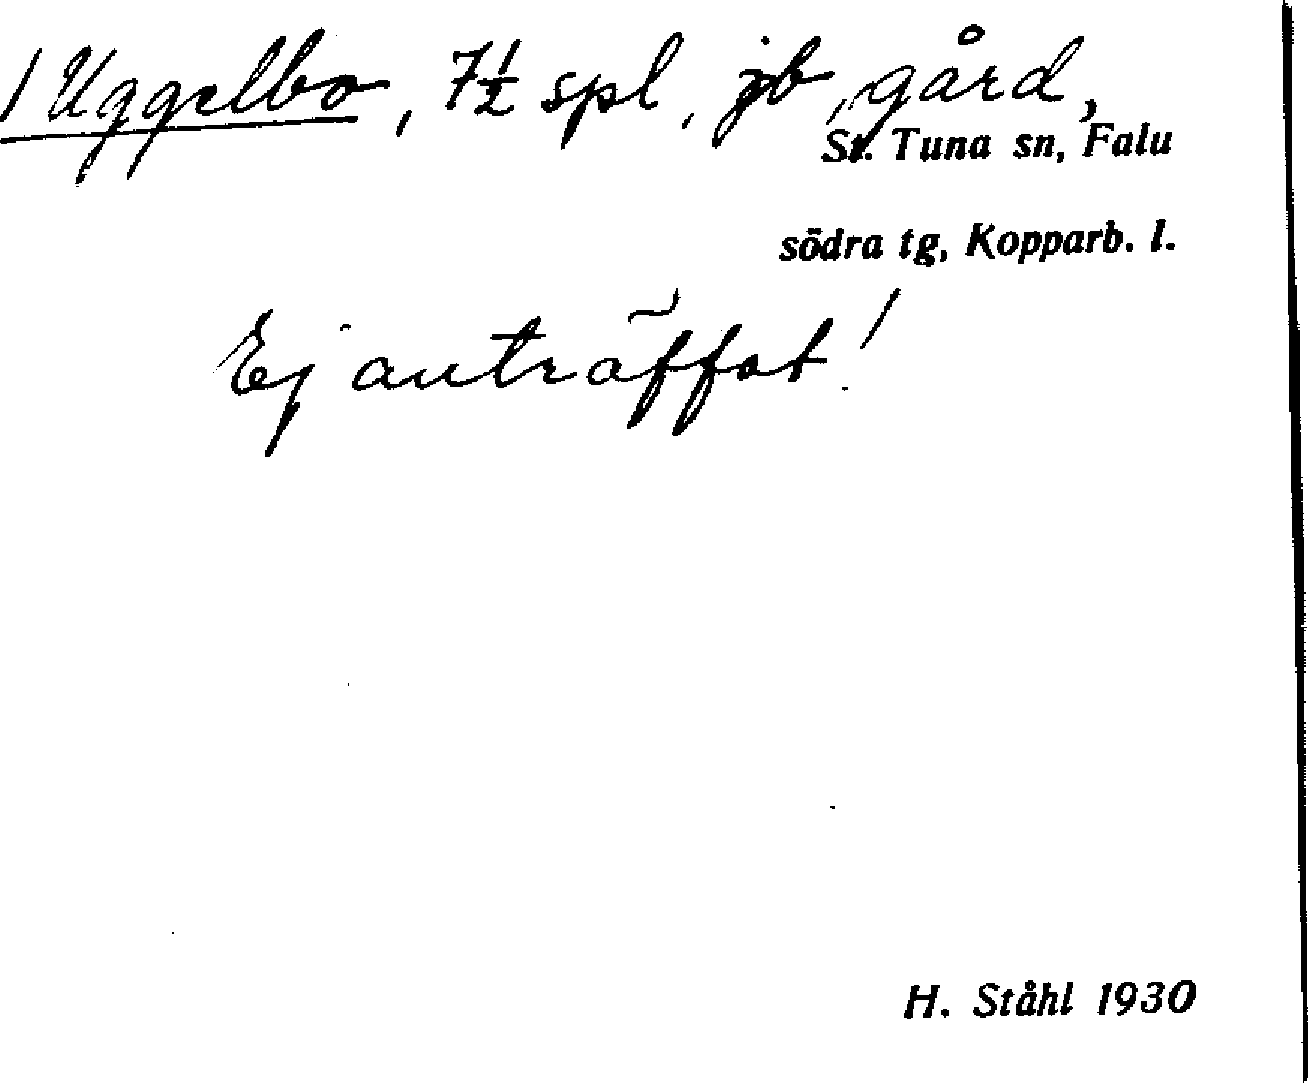 1 Uggelbo, 7 1/2 spl, jb, gård,
St. Tuna sn, Falu
södra tg, Kopparb. l.
Ej anträffat!
H. Ståhl 1930